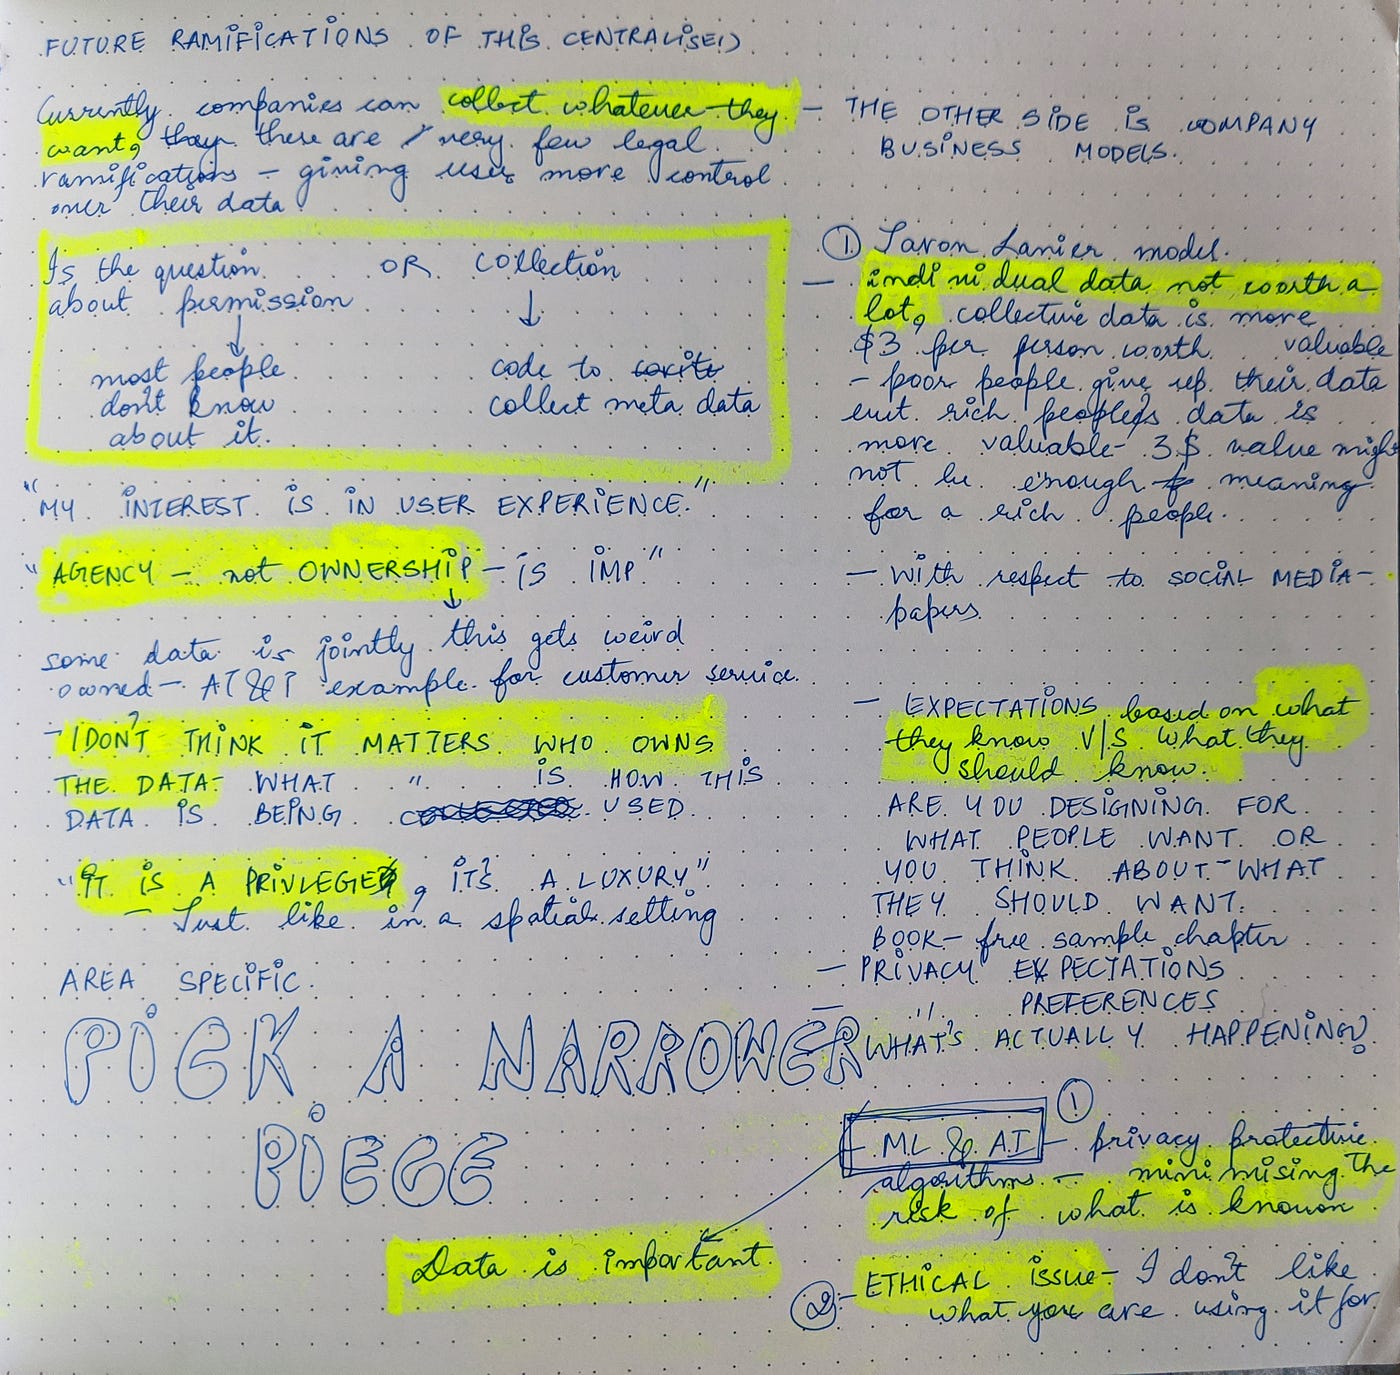 FUTURE RAMIFICATIONS OF THIS CENTRALISED
Currently companies can collect whatever they
want, there are very few legal
ramifications - giving users more control
over their data
Is the question OR collection
about permission
most people
don't know
about it.
code to
collect meta data
"MY INTEREST IS IN USER EXPERIENCE."
"AGENCY - not OWNERSHIP - is IMP"
this gets weird
some data is jointly
owned - AT&T example for customer service.
- I DON'T THINK IT MATTERS WHO OWNS
THE DATA - WHAT " IS HOW THIS
DATA IS BEING USED
"IT IS A PRIVLEGE, IT'S A LUXURY"
- Just like in a spatial setting
AREA SPECIFIC.
PICK A NARROWER
PIECE
Data is important
- THE OTHER SIDE IS COMPANY
BUSINESS MODELS.
① Jaron Lanier model.
- individual data not worth a
lot, collective data is more
$3 per person worth valuable
- poor people give up their data
but rich people's data is
more valuable - 3$ value might
not be enough meaning
for a rich people.
- with respect to SOCIAL MEDIA -
papers
- EXPECTATIONS based on what
they know V/S what they
should know.
ARE YOU DESIGNING FOR
WHAT PEOPLE WANT OR
YOU THINK ABOUT - WHAT
THEY SHOULD WANT.
BOOK - free sample chapter
- PRIVACY EXPECTATIONS
- " PREFERENCES
WHAT'S ACTUALLY HAPPENING?
①
- ML & AI - privacy protective
algorithms - minimising the
risk of what is known
② - ETHICAL issue - I don't like
what you are using it for